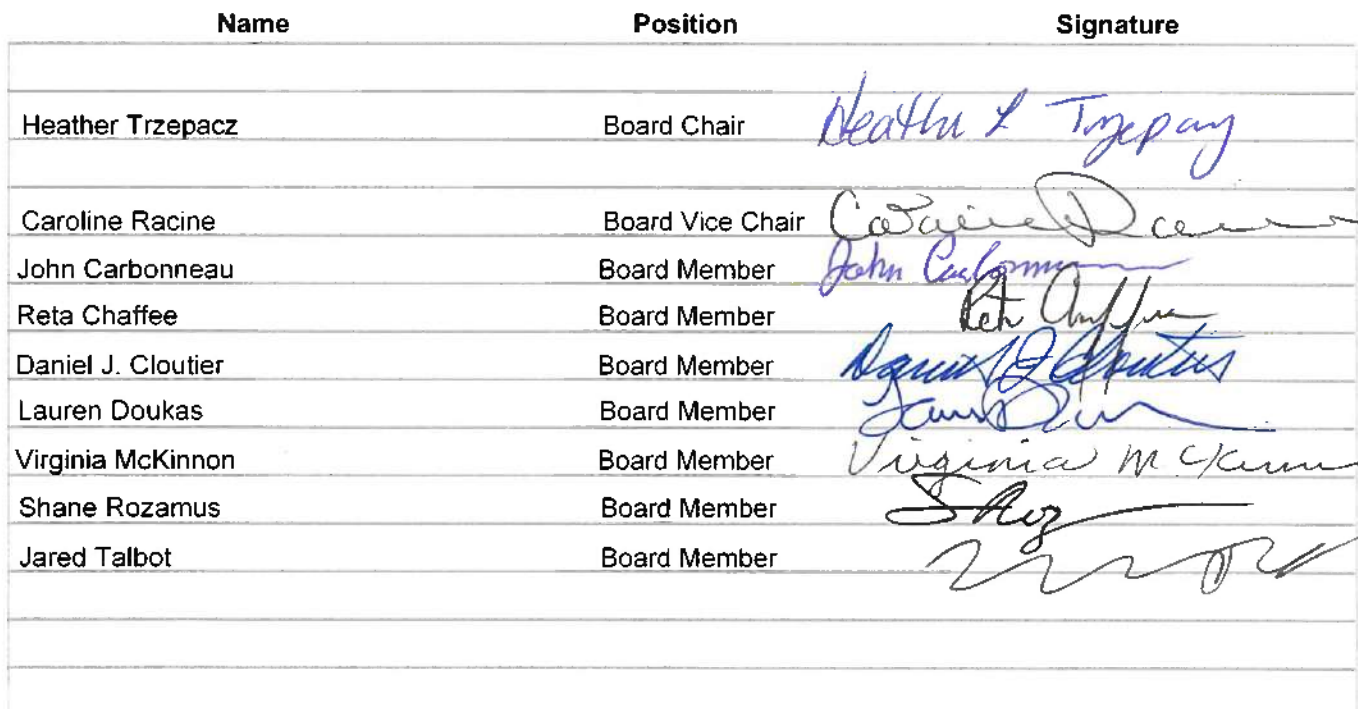 Name Position Signature
Heather Trzepacz Board Chair Heather L Trzepacz
Caroline Racine Board Vice Chair Caroline Racine
John Carbonneau Board Member John Carbonneau
Reta Chaffee Board Member Reta Chaffee
Daniel J. Cloutier Board Member Daniel J Cloutier
Lauren Doukas Board Member
Virginia McKinnon Board Member Virginia McKinnon
Shane Rozamus Board Member
Jared Talbot Board Member